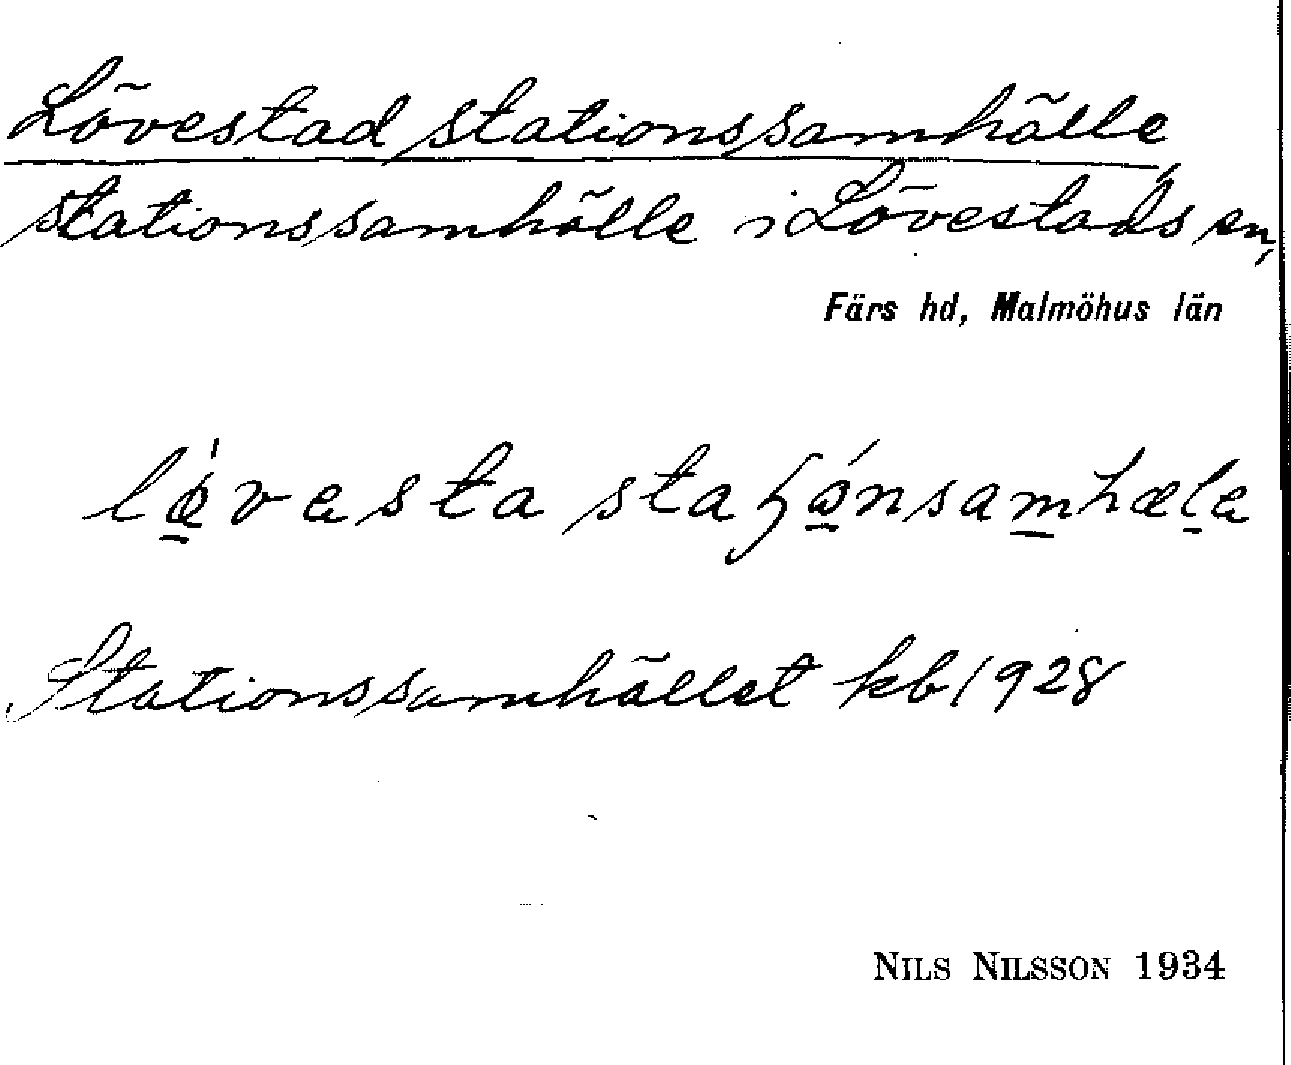 Lövestad stationssamhälle
stationssamhälle i Lövestads sn,
Färs hd, Malmöhus län
Stationssamhället kb 1928
NILS NILSSON 1934